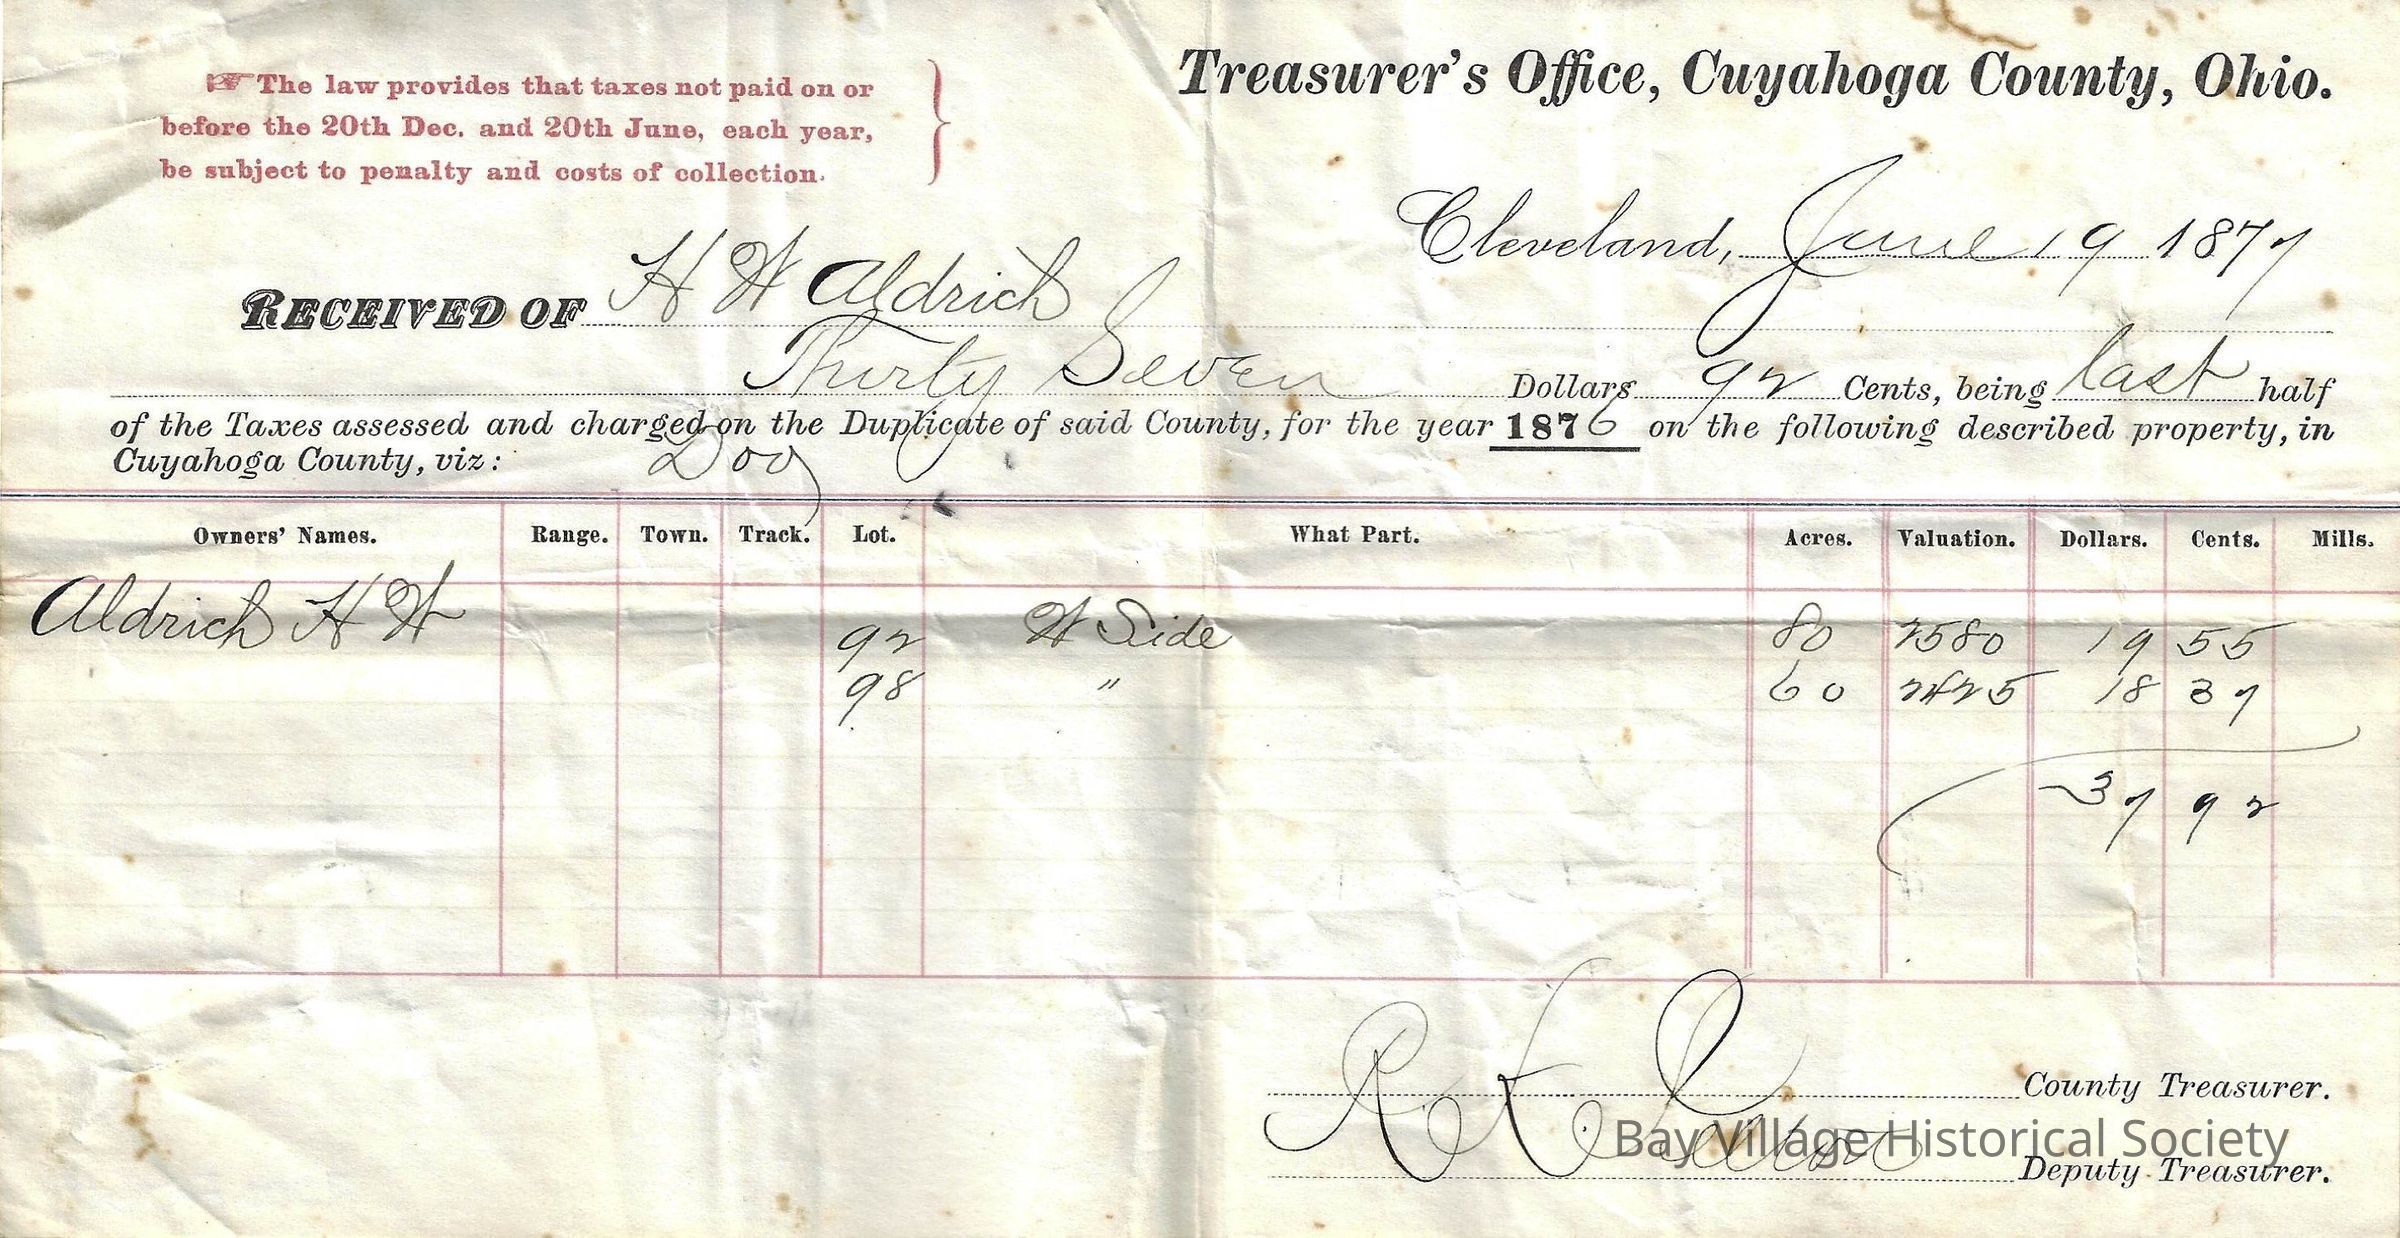 Treasurer's Office, Cuyahoga County, Ohio.
☞ The law provides that taxes not paid on or
before the 20th Dec. and 20th June, each year,
be subject to penalty and costs of collection.
Cleveland, June 19 1877
RECEIVED OF H W Aldrich
Thirty Seven Dollars 92 Cents, being last half
of the Taxes assessed and charged on the Duplicate of said County, for the year 1876 on the following described property, in
Cuyahoga County, viz: Dog
Owners' Names. Range. Town. Track. Lot. What Part. Acres. Valuation. Dollars. Cents. Mills.
Aldrich H W 92 W Side 80 2580 19 55
98 " 60 2425 18 37
37 92
County Treasurer.
Bay Village Historical Society
Deputy Treasurer.